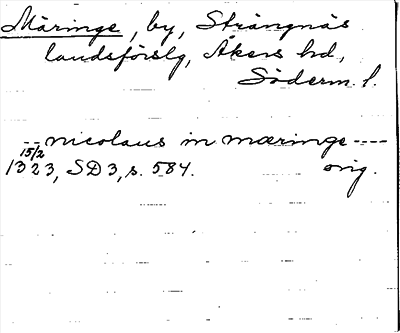 Märinge, by, Strängnäs
landsförslg, Åkers hd,
Söderm. l.
-- nicolaus in mæringe ----
15/2
1323, SD3, s. 584. orig.